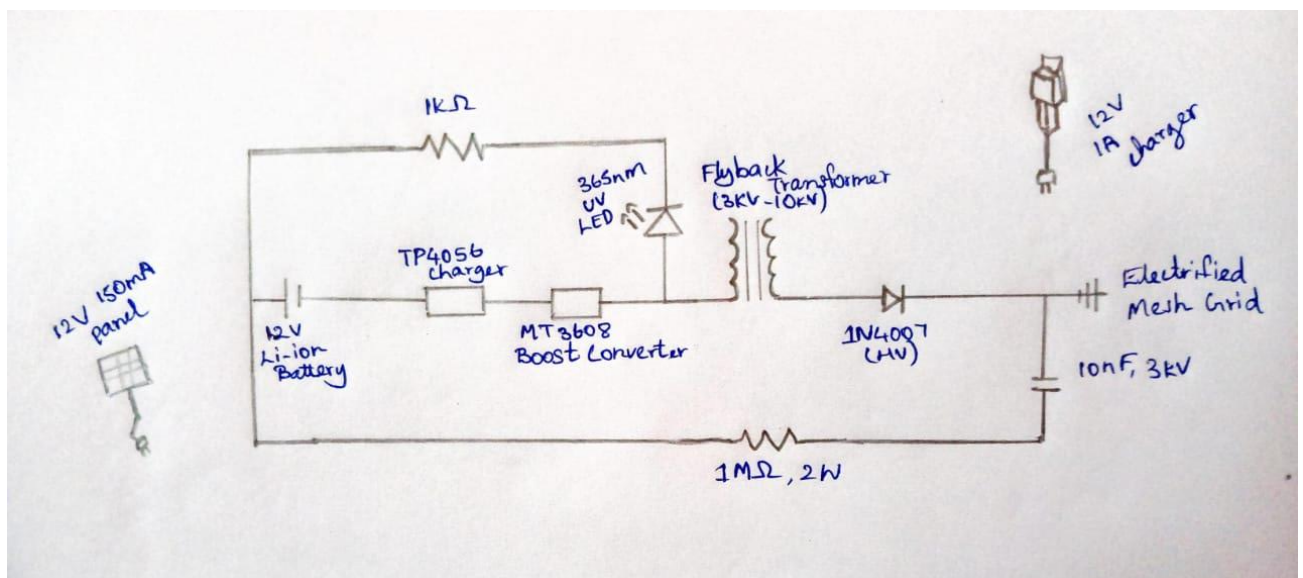 1KΩ
12V
1A
charger
365nm
UV
LED
Flyback
Transformer
(3KV-10KV)
12V 150mA
panel
TP4056
charger
12V
Li-ion
Battery
MT3608
Boost Converter
1N4007
(HV)
Electrified
Mesh Grid
10nF, 3KV
1MΩ, 2W